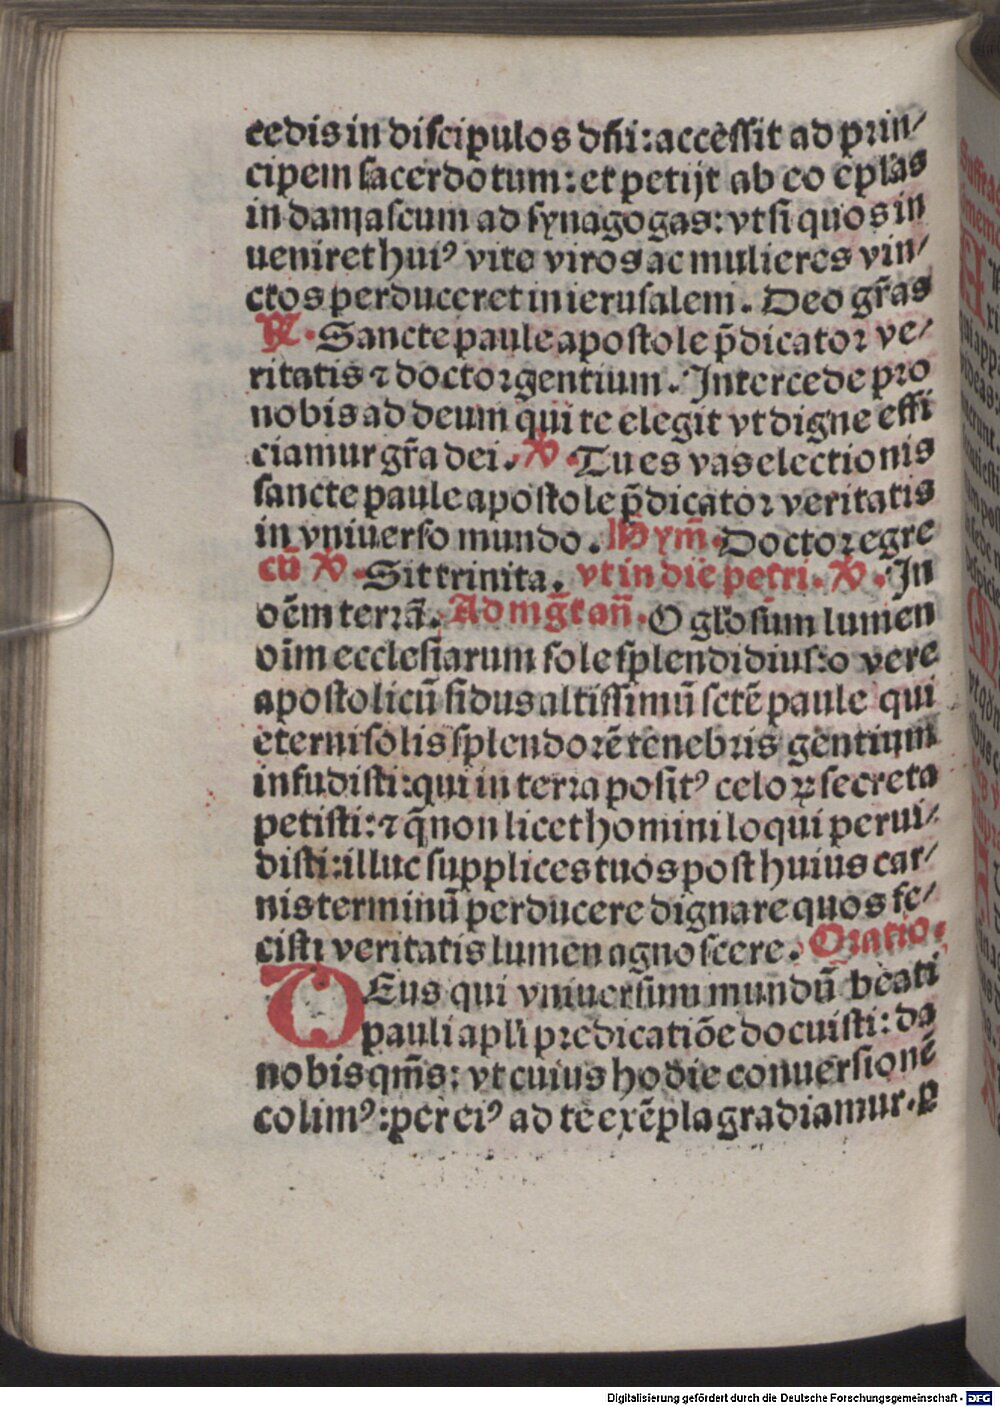 cedis in discipulos dñi: accessit ad prin⸗
cipem sacerdotum: et petijt ab eo ep̄las
in damascum ad synagogas: vt si quos in
ueniret huiꝰ vite viros ac mulieres vin⸗
ctos perduceret in ierusalem. Deo gr̄as
℟. Sancte paule apostole p̄dicator ve⸗
ritatis ⁊ doctor gentium. Intercede pro
nobis ad deum qui te elegit vt digne effi
ciamur gr̄a dei. ℣. Tu es vas electionis
sancte paule apostole p̄dicator veritatis
in vniuerso mundo. Hym̄. Doctor egre
cū ℣. Sit trinita. vt in die petri. ℣. In
oēm terrā. Ad mḡt an̄. O glōsum lumen
oīm ecclesiarum sole splendidius: o vere
apostolicū sidus altissimū sctē paule qui
eterni solis splendorē tenebris gentium
infudisti: qui in terra positꝰ celoꝝ secreta
petisti: ⁊ q̄ non licet homini loqui perui⸗
disti: illuc supplices tuos post huius car⸗
nis terminū perducere dignare quos fe⸗
cisti veritatis lumen agnoscere. Oratio.
DEus qui vniuersum mundū beati
pauli apl̄i predicatiōe docuisti: da
nobis qm̄s: vt cuius hodie conuersionē
colimꝰ: per eiꝰ ad te exēpla gradiamur. ꝑ
Digitalisierung gefördert durch die Deutsche Forschungsgemeinschaft - DFG